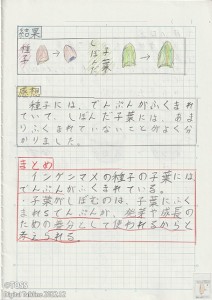 結果
種子
しぼんだ子葉
感想
種子には、でんぷんがふくまれ
ていて、しぼんだ子葉には、あま
りふくまれていないことがよく分
かりました。
まとめ
・インゲンマメの種子の子葉には
でんぷんがふくまれている。
・子葉がしぼむのは、子葉にふくま
れるでんぷんが、発芽や成長の
ための養分として使われるからと
考えられる。
©TOSS
Digital TaMtan 2012.12